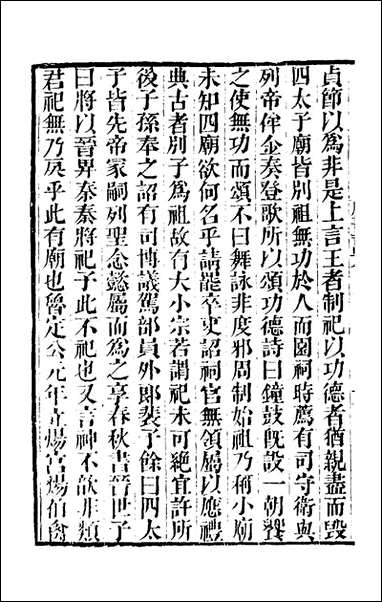 貞節以為非是上言王者制祀以功德者猶親盡而毀
四太子廟皆別祖無功於人而園祠時薦有司守衛與
列帝侔金奏登歌所以頌功德詩曰鐘鼓既設一朝饗
之使無功而頌不曰舞詠非度邪周制始祖乃稱小廟
未知四廟欲何名乎請罷卒吏詔祠官無領屬以應禮
典古者別子為祖故有大小宗若謂祀未可絕宜許所
後子孫奉之詔有司博議駕部員外郎裴子餘曰四太
子皆先帝冢嗣列聖念懿屬而為之享春秋書晉世子
曰將以晉畀秦秦將祀予此不祀也又言神不歆非類
君祀無乃殄乎此有廟也魯定公元年立煬宮煬伯禽